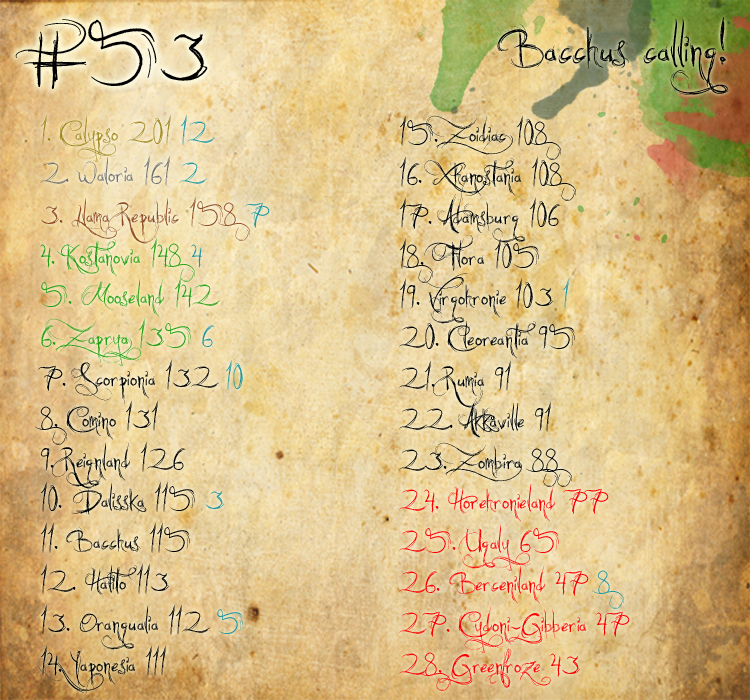 #53
Bacchus calling!
1. Calypso 201 12
2. Waloria 161 2
3. Llama Republic 158 7
4. Kostanovia 148 4
5. Mooseland 142
6. Zaprya 135 6
7. Scorpionia 132 10
8. Comino 131
9. Reignland 126
10. Dalisska 115 3
11. Bacchus 115
12. Hatito 113
13. Orangualia 112 5
14. Yaponesia 111
15. Zoidiac 108
16. Xhanostania 108
17. Adamsburg 106
18. Flora 105
19. Virgokronie 103 1
20. Cleoreantia 95
21. Rumia 91
22. Akkaville 91
23. Zombira 88
24. Horekronieland 77
25. Ugaly 65
26. Berseniland 47 8
27. Cydoni-Gibberia 47
28. Greenfroze 43